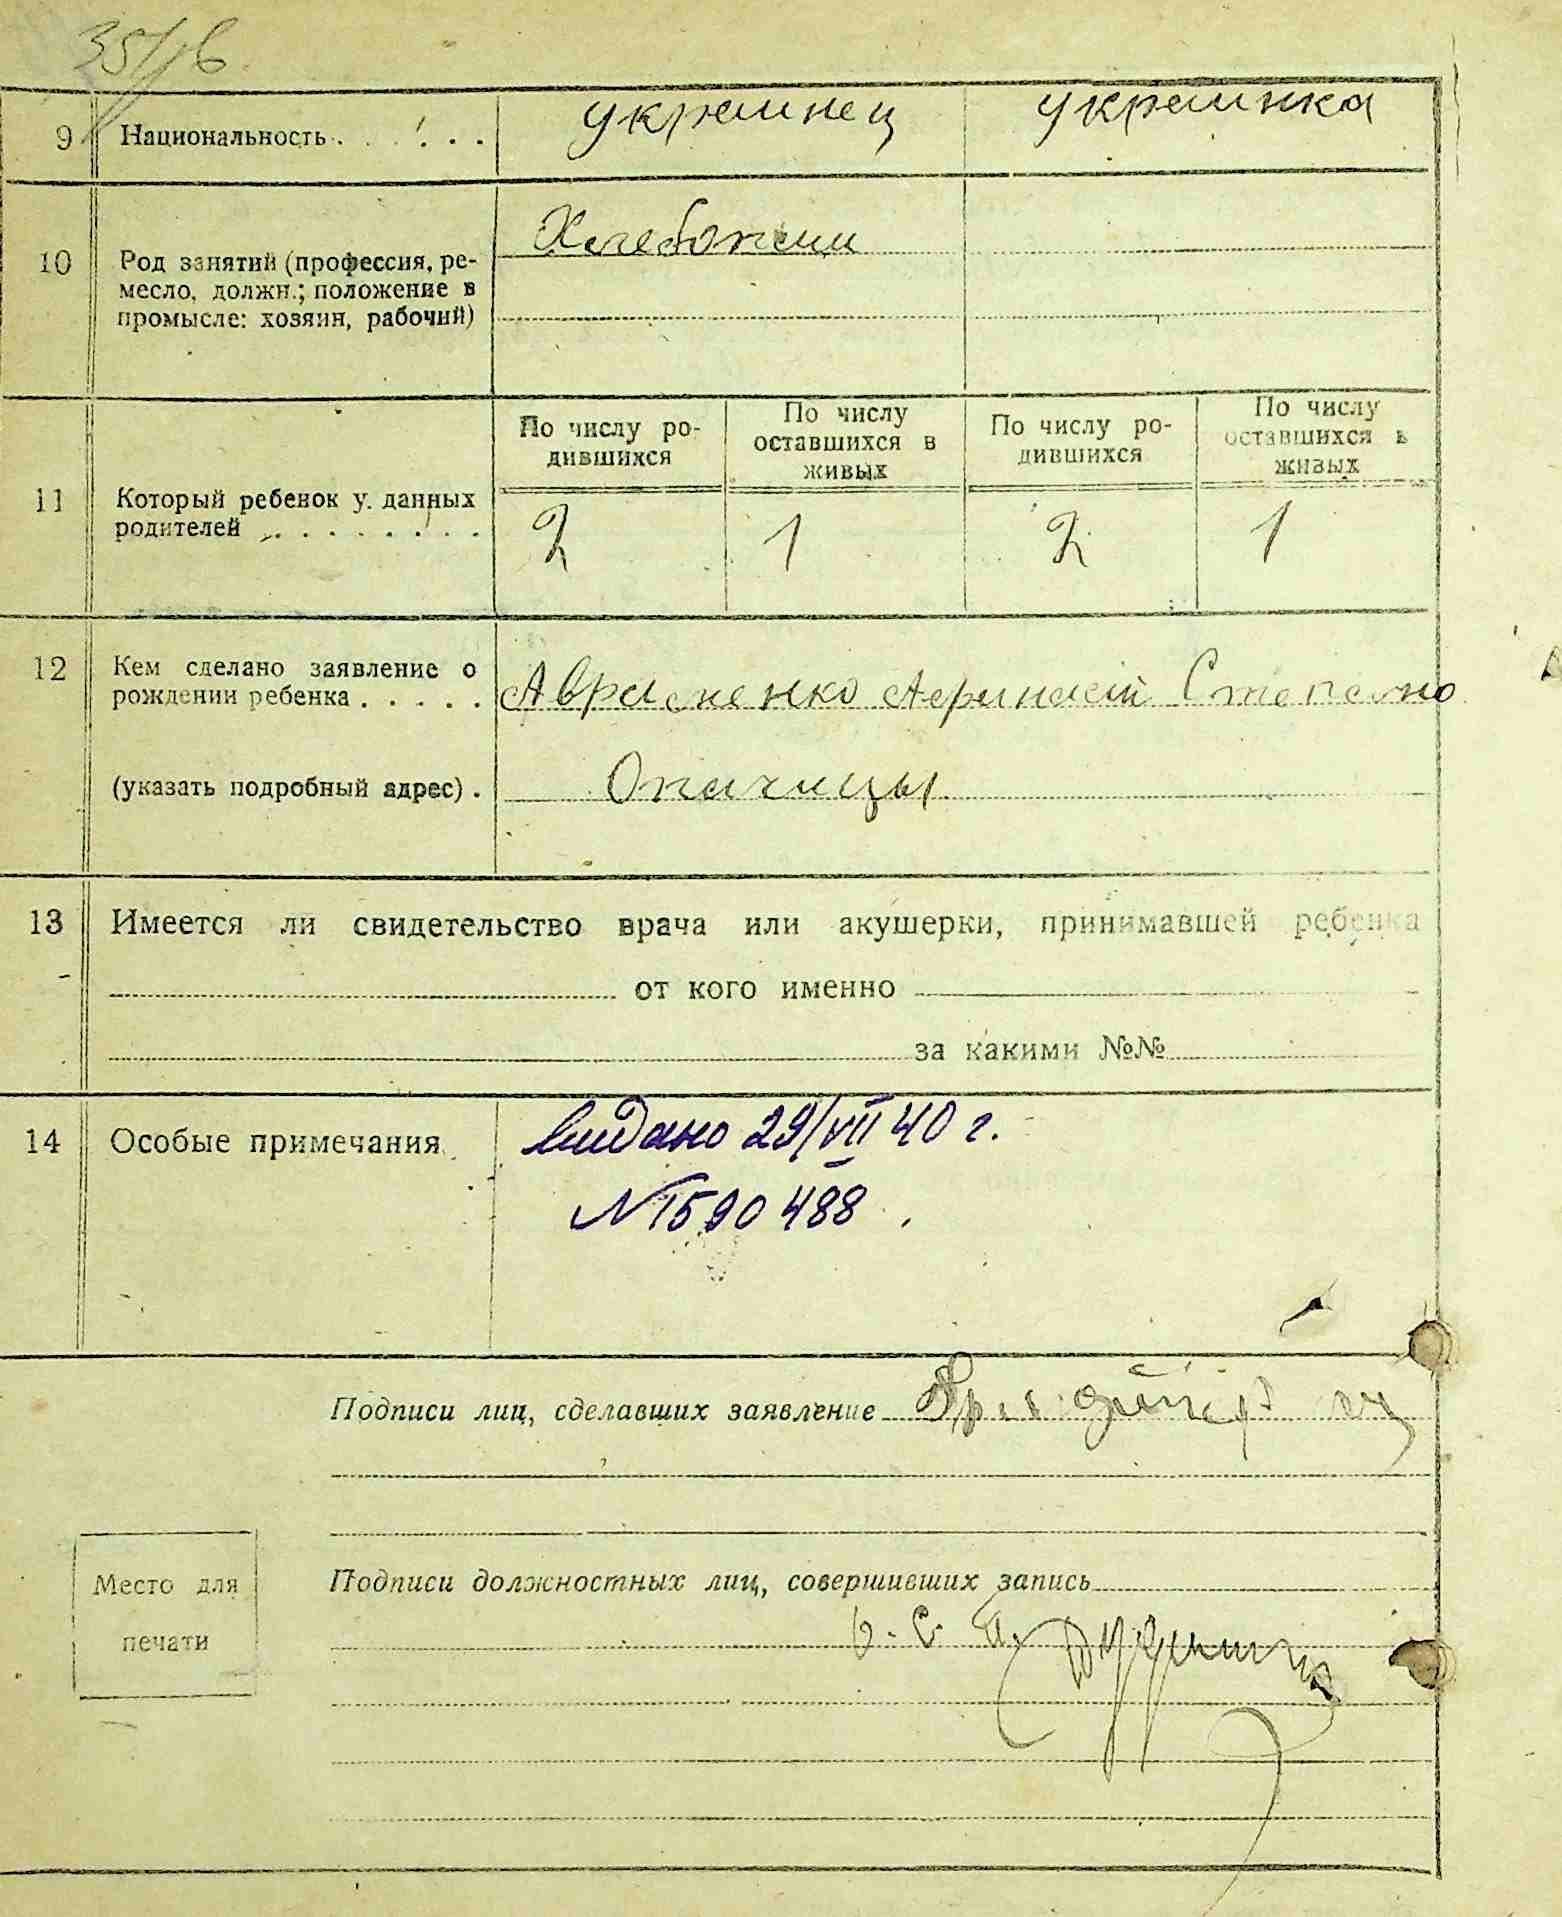 35/16
9 Национальность . . . . . . украинец украинка
10 Род занятий (профессия, ре-
месло, должн.; положение в
промысле: хозяин, рабочий)
Хлебопаш
По числу ро-
дившихся
По числу
оставшихся в
живых
По числу ро-
дившихся
По числу
оставшихся в
живых
11 Который ребенок у данных
родителей . . . . . . . . .
2 1 2 1
12 Кем сделано заявление о
рождении ребенка . . . . .
Авраменко Афанасий Степано
(указать подробный адрес) .
Опачицы
13 Имеется ли свидетельство врача или акушерки, принимавшей ребенка
от кого именно
за какими №№
14 Особые примечания.
видано 29/VII 40 г.
N 1590488
Подписи лиц, сделавших заявление
Подписи должностных лиц, совершивших запись
Место для
печати